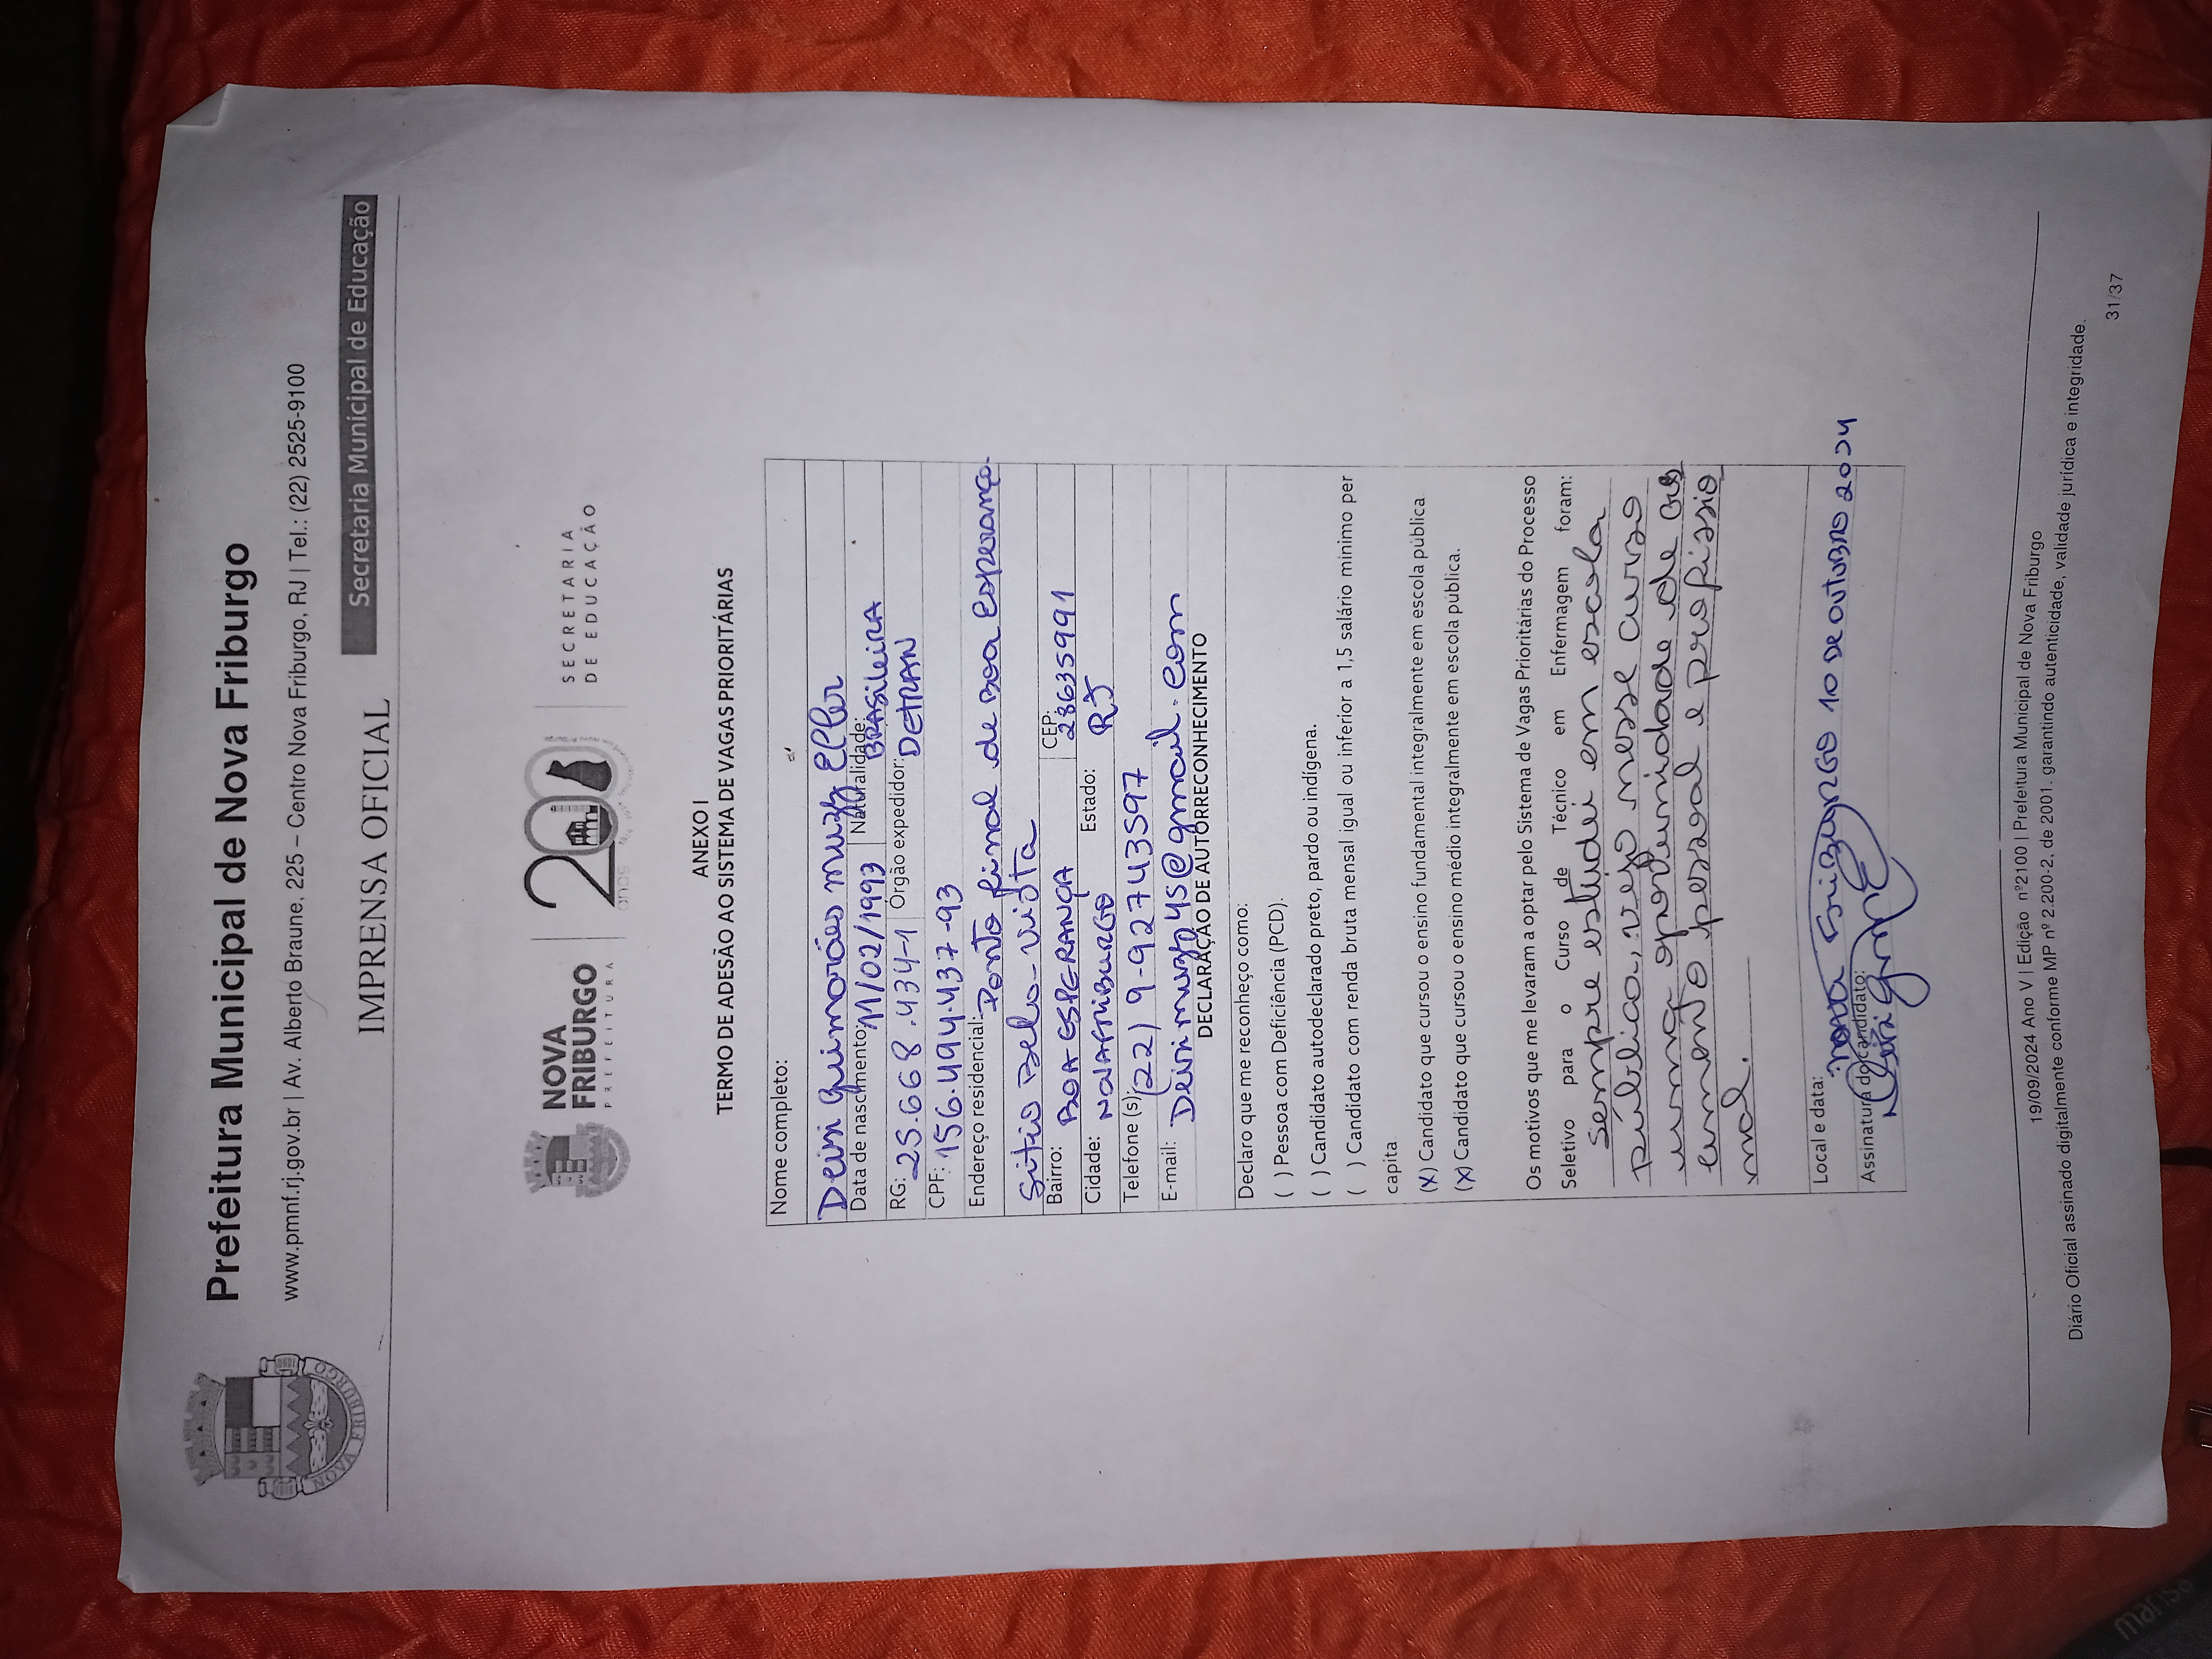 Prefeitura Municipal de Nova Friburgo
www.pmnf.rj.gov.br | Av. Alberto Braune, 225 – Centro Nova Friburgo, RJ | Tel.: (22) 2525-9100
IMPRENSA OFICIAL
Secretaria Municipal de Educação
NOVA FRIBURGO
NOVA
FRIBURGO
PREFEITURA
200
anos
SECRETARIA
DE EDUCAÇÃO
ANEXO I
TERMO DE ADESÃO AO SISTEMA DE VAGAS PRIORITÁRIAS
Nome completo:
Deisi Guimarães muzy Eller
Data de nascimento: 11/02/1993 Naturalidade: BRASileiRA
RG: 25.668.434-1 Órgão expedidor: DETRAN
CPF: 156.494.437-93
Endereço residencial: Ponto final de Boa Esperança-
Sitio Bela-Vista
Bairro: BOA ESPERANÇA CEP: 28635991
Cidade: NOVAFRIBURGO Estado: RJ
Telefone (s): (22) 9-92743597
E-mail: Deisimuzy45@gmail.com
DECLARAÇÃO DE AUTORRECONHECIMENTO
Declaro que me reconheço como:
( ) Pessoa com Deficiência (PCD).
( ) Candidato autodeclarado preto, pardo ou indígena.
( ) Candidato com renda bruta mensal igual ou inferior a 1,5 salário mínimo per
capita
(X) Candidato que cursou o ensino fundamental integralmente em escola pública
(X) Candidato que cursou o ensino médio integralmente em escola pública.
Os motivos que me levaram a optar pelo Sistema de Vagas Prioritárias do Processo
Seletivo para o Curso de Técnico em Enfermagem foram:
Sempre estudei em escola
pública, vejo nesse curso
uma oportunidade de cres
cimento pessoal e profissio
nal.
Local e data: Nova FriBurgo 10 DE OUTUBRO 2024
Assinatura do candidato:
19/09/2024 Ano V | Edição nº2100 | Prefeitura Municipal de Nova Friburgo
Diário Oficial assinado digitalmente conforme MP nº 2.200-2, de 2001. garantindo autenticidade, validade jurídica e integridade.
31/37